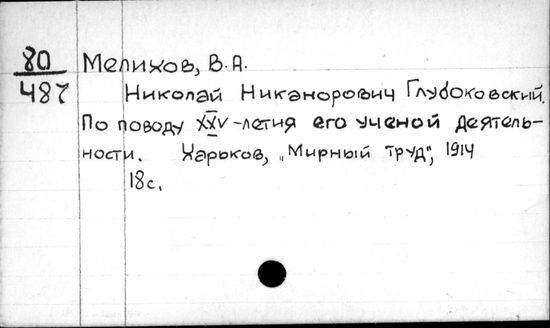 80 Мелихов, В.А.
487 Николай Никанорович Глубоковский.
По поводу XXV-летия его ученой деятель-
ности. Харьков, „Мирный труд", 1914
18с.